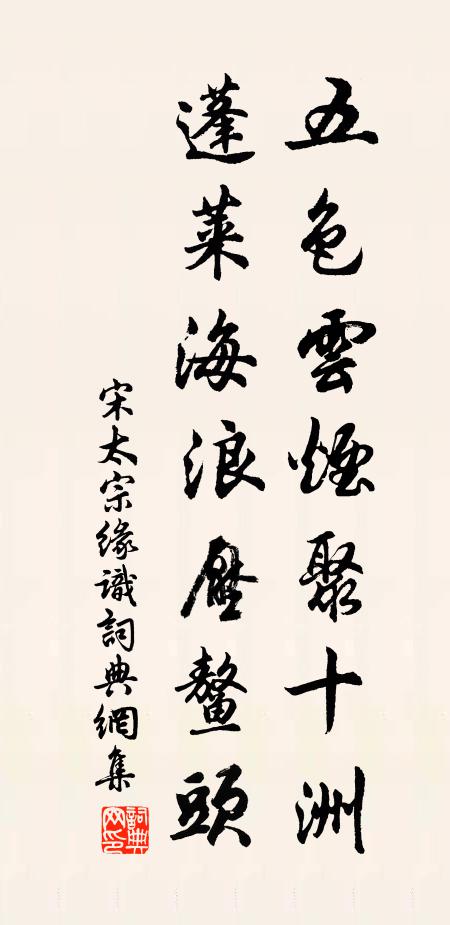 五色雲煙聚十洲
蓬萊海浪壓鰲頭
宋太宗緣識詞典網集
詞典網印